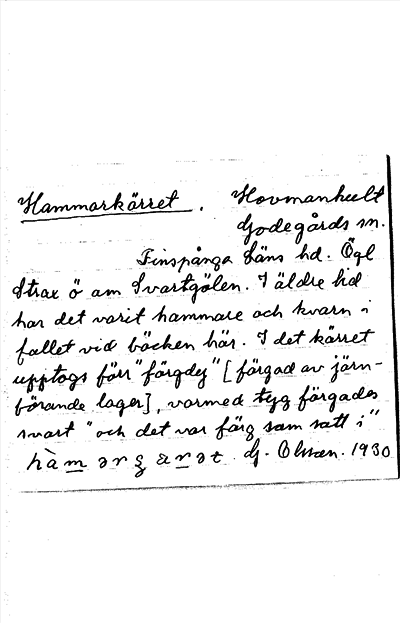 Hammarkärret. Hovmanhult
Godegårds sn.
Finspånga Läns hd. Ögl
Strax ö om Svartgölen. I äldre tid
har det varit hammare och kvarn i
fallet vid bäcken här. I det kärret
upptogs förr "färgdej" [färgad av järn-
förande lager], varmed tyg färgades
svart "och det var färg som satt i"
G. Olsson. 1930